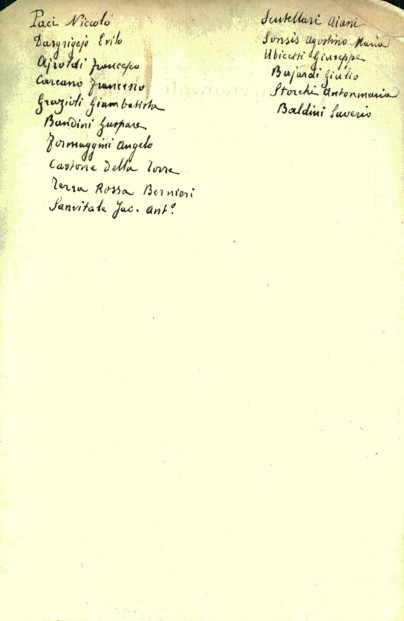 Paci Niccolò
Dasgrigejo Evilo
Ajroldi Francesco
Carcano Francesco
Grazioli Giambatista
Bandini Gaspare
Formaggini Angelo
Castone Della Torre
Terra Rossa Bernieri
Sanvitale Jac. Ant.º
Scutellari Ajani
Sonsis Agostino Maria
Ubicesti Giuseppe
Bajardi Giulio
Storchi Antonmaria
Baldini Saverio